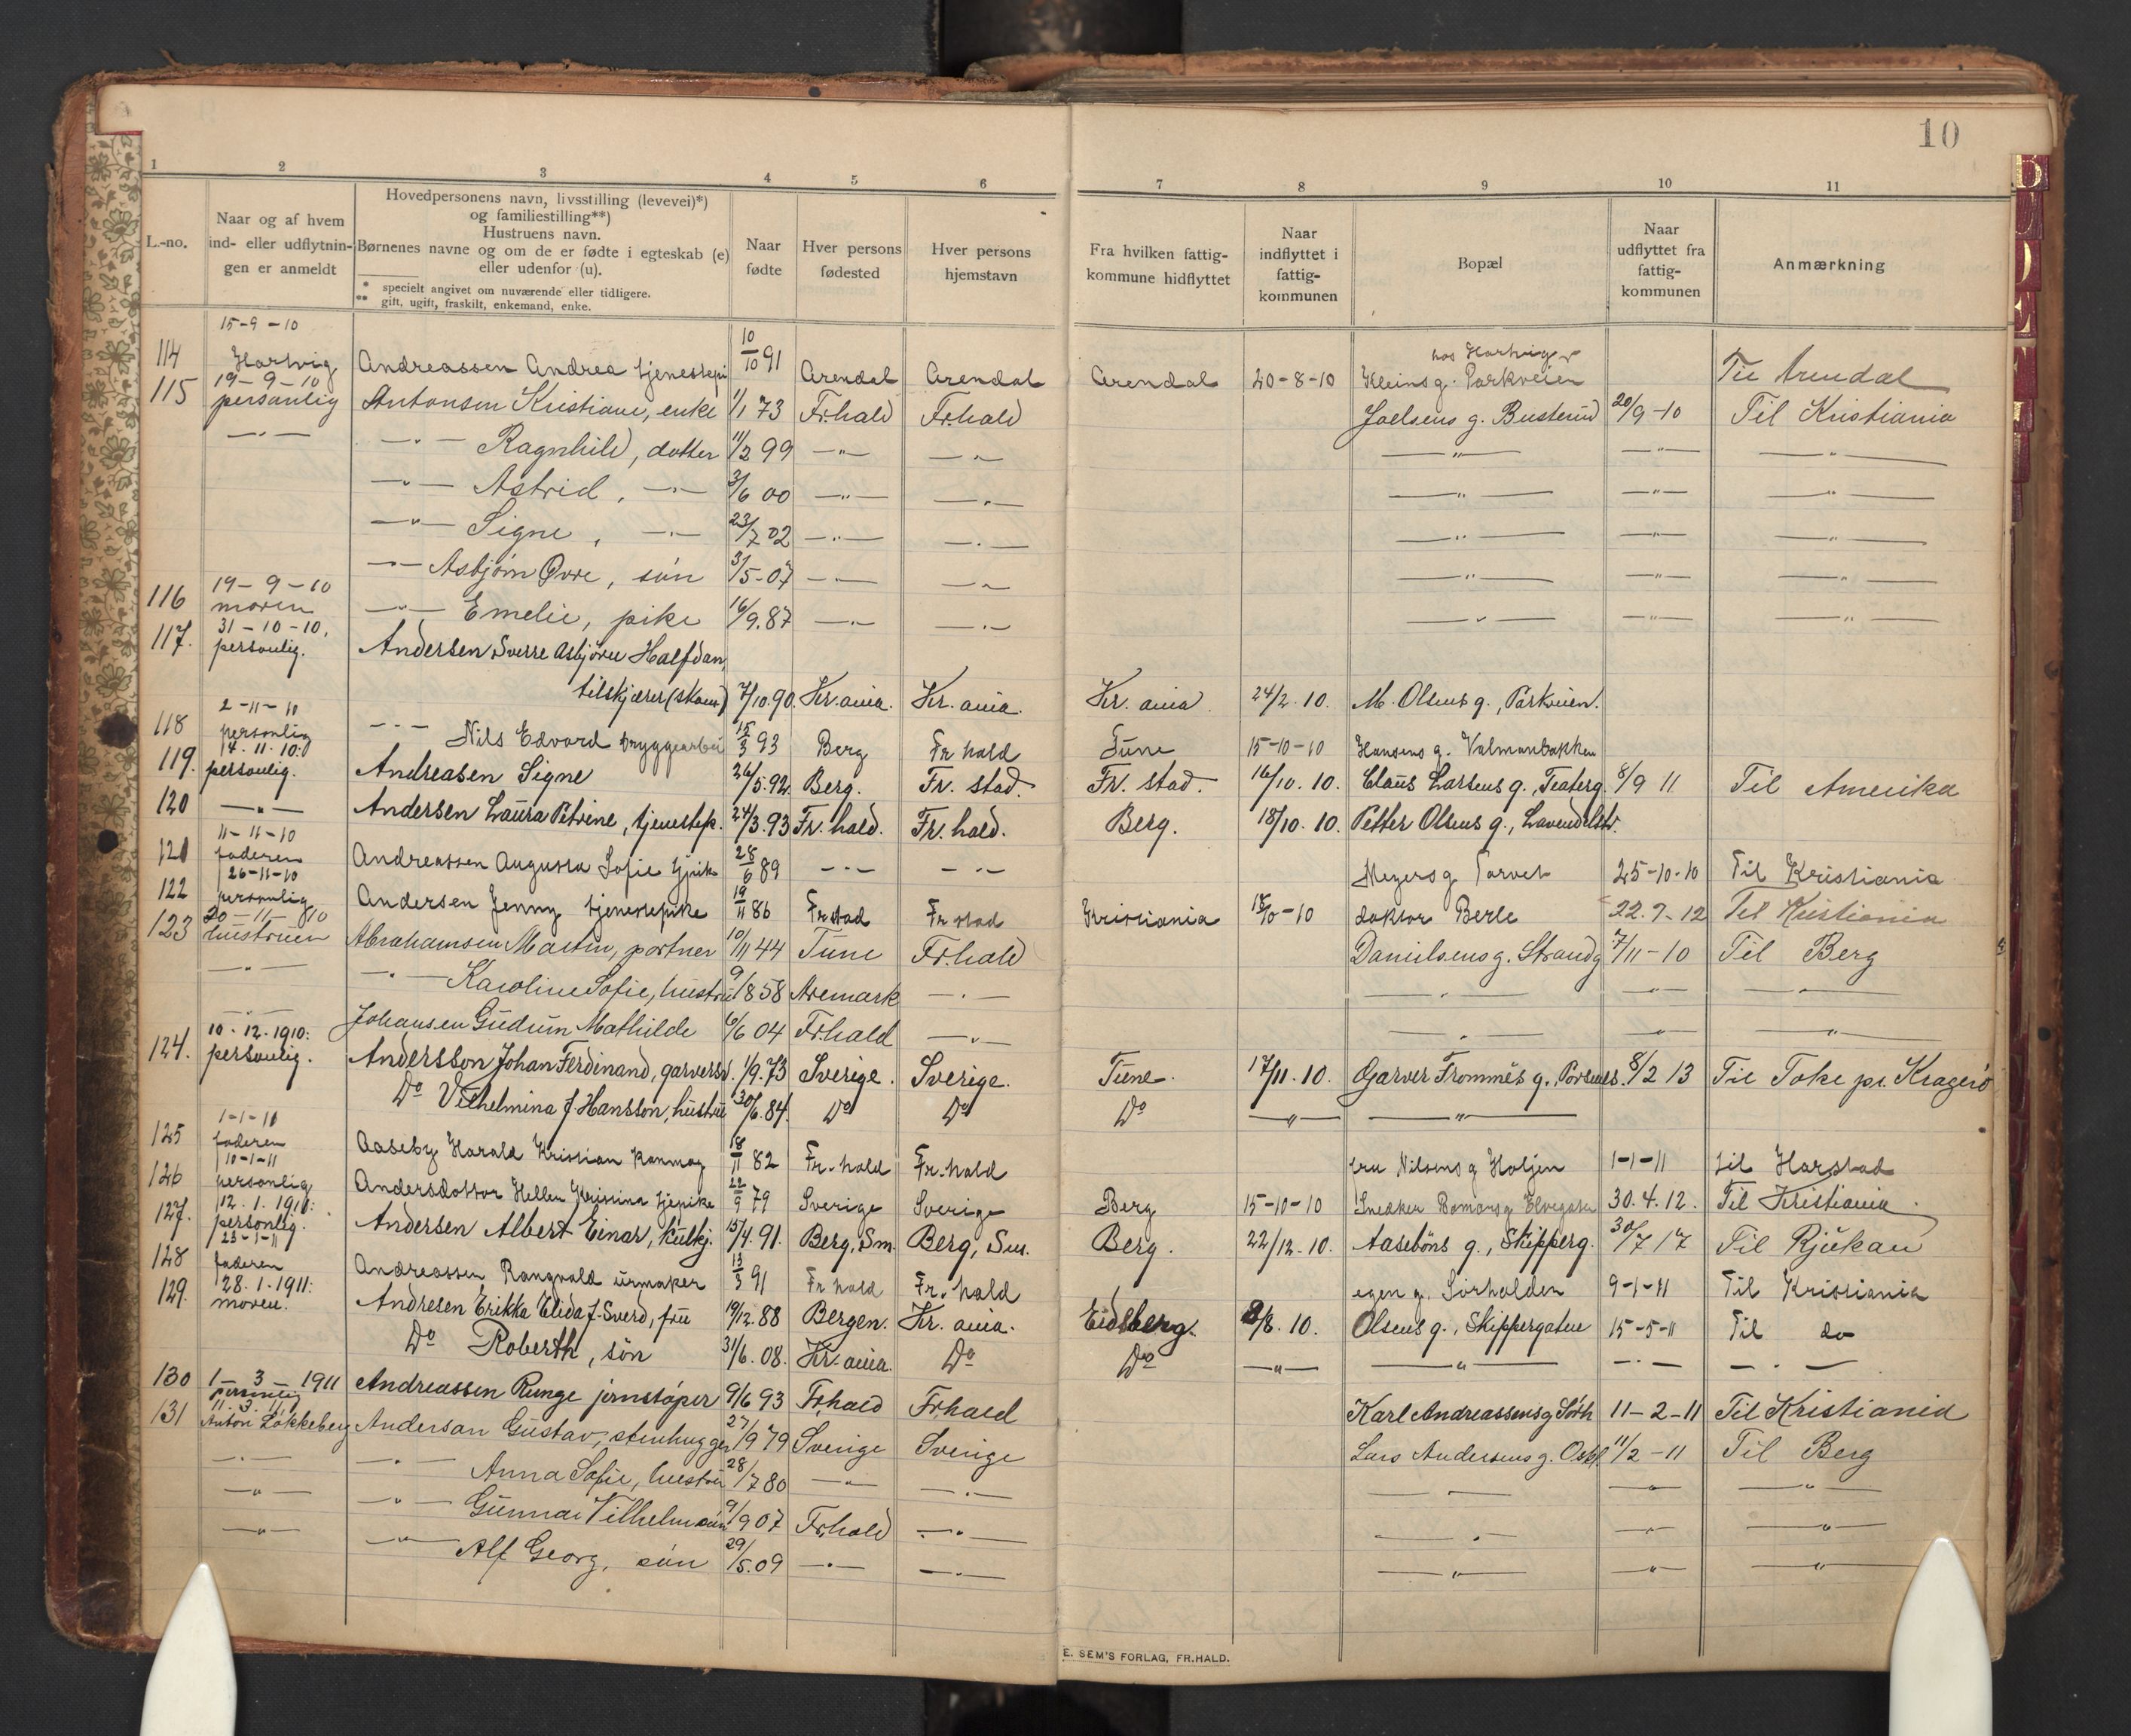 10
1 2 3 4 5 6 7 8 9 10 11
L.-no.
Naar og af hvem
ind- eller udflytnin-
gen er anmeldt
Hovedpersonens navn, livsstilling (levevei)*)
og familiestilling**)
Hustruens navn.
Børnenes navne og om de er fødte i egteskab (e)
eller udenfor (u).
* specielt angivet om nuværende eller tidligere.
** gift, ugift, fraskilt, enkemand, enke.
Naar
fødte
Hver persons
fødested
Hver persons
hjemstavn
Fra hvilken fattig-
kommune hidflyttet
Naar
indflyttet i
fattig-
kommunen
Bopæl
Naar
udflyttet fra
fattig-
kommunen
Anmærkning
15-9-10 hos Hartvig
114 Hartvig Andreassen Andrea tjenestepi 10/10 91 Arendal Arendal Arendal 20-8-10 Kleinsg. Parkveien Til Arendal
19-9-10
115 personlig Antonsen Kristiane, enke 1/1 73 Fr.hald Fr.hald Joelsens g. Busterud 20/9-10 Til Kristiania
-"- -"- Ragnhild, dotter 11/2 99 -"- -"- -"- -"- -"-
-"- Astrid, -"- 3/6 00 -"- -"- -"- -"- -"-
-"- Signe, -"- 23/7 02 -"- -"- -"- -"- -"-
-"- Asbjørn Øvre, søn 31/5-07 -"- -"- -"- -"- -"-
19-9-10
116 moren -"- Emelie, pike 16/9.87 -"- -"- -"- -"- -"-
31-10-10,
117. personlig. Andersen Sverre Asbjørn Halfdan,
tilskjærer (skom) 7/10.90. Kr.ania. Kr.ania. Kr.ania. 24/2.10. M. Olsens g., Parkveien.
2-11-10
118 personlig -"- Nils Edvard bryggearbei 15/3 93 Berg Fr hald Tune 15-10-10 Hansens g. Valmanbakken
14.11.10:
119. personlig. Andreasen Signe 26/5.92. Berg. Fr. stad. Fr. stad. 16/10.10. Claus Larsens g., Teaterg. 8/9 11 Til Amerika
120 -"- Andersen Laura Petrine, tjenestepk. 24/3.93 Fr.hald. Fr.hald. Berg. 18/10.10. Petter Olsens g., Lavendelstr.
11-11-10
121 faderen Andreassen Augusta Sofie tjpik 28/6 89 -"- -"- Meyersg Torvet 25-10-10 Til Kristiania
26-11-10
122 personlig Andersen Jenny tjenestepike 19/11 86 Frstad Fr stad Kristiania 15/10-10 doktor Berle 22.7-12 Til Kristiania
20-11-10
123 hustruen Abrahamsen Martin, portner 10/11 44 Tune Fr.hald Danielsens g. Strandg 7/11-10 Til Berg
-"- -"- Karoline Sofie, hustru 9/8 58 Aremark -"- -"- -"- -"-
-"- Johansen Gudrun Mathilde 6/6 04 Fr.hald -"- -"- -"- -"-
10.12.1910:
124. personlig. Andersson Johan Ferdinand, garversv. 1/9.73 Sverige. Sverige. Tune. 17/11.10. Garver Frommes g. Porsnes. 8/2 13 Til Toke pr. Kragerø
Do Vilhelmina f. Hansson, hustru 30/6.84. Do Do Do -"- -"-
1-1-10
125 faderen Aaseby Harald Kristian kanmag 18/11 82 Fr.hald Fr.hald fru Nilsens g Holjen 1-1-11 til Harstad
10-1-11
126 personlig Andersdotter Hellen Kristina tjepike 22/9 79 Sverige Sverige Berg 15-10-10 Snedker Bomansg Elvegaten 30.4.12. Til Kristiania.
12.1.1910:
127. personlig. Andersen Albert Einar, kulkj. 15/4.91. Berg, Sm. Berg, Sm. Berg. 22/12-10. Aasebøns g., Skipperg. 30/7 17 Til Rjukan
23-1-11
128 faderen Andreassen Rangvald urmaker 13/3 91 Fr hald Fr.hald egen g. Sørhalden 9-1-11 Til Kristiania
28.1.1911:
129. moren. Andresen Erikka Elida f. Sverd, fru 19/12.88 Bergen. Kr.ania. Eidsberg. 8/8.10. Olsens g., Skippergaten 15-5-11 Til do
Do Roberth, søn 31/6.08. Kr.ania Do Do -"- -"- -"- -"-
130 1-3-1911 Andreassen Runge jernstøper 9/6 93 Fr.hald Fr.hald Karl Andreassens g Sørh 11-2-11 Til Kristiania
personlig
11.3.11
131 Anton Løkkeberg Anderson Gustav, stenhugger 27/9 79 Sverige Sverige Lars Andersens g. Oskl. 11/2-11 Til Berg
-"- -"- Anna Sofie, hustru 28/7 80 -"- -"- -"- -"- -"-
-"- -"- Gunnar Vilhelm søn 9/9 07 Fr.hald -"- -"- -"- -"-
-"- -"- Alf Georg, søn 29/5.09 -"- -"- -"- -"- -"-
E. SEM'S FORLAG, FR.HALD.